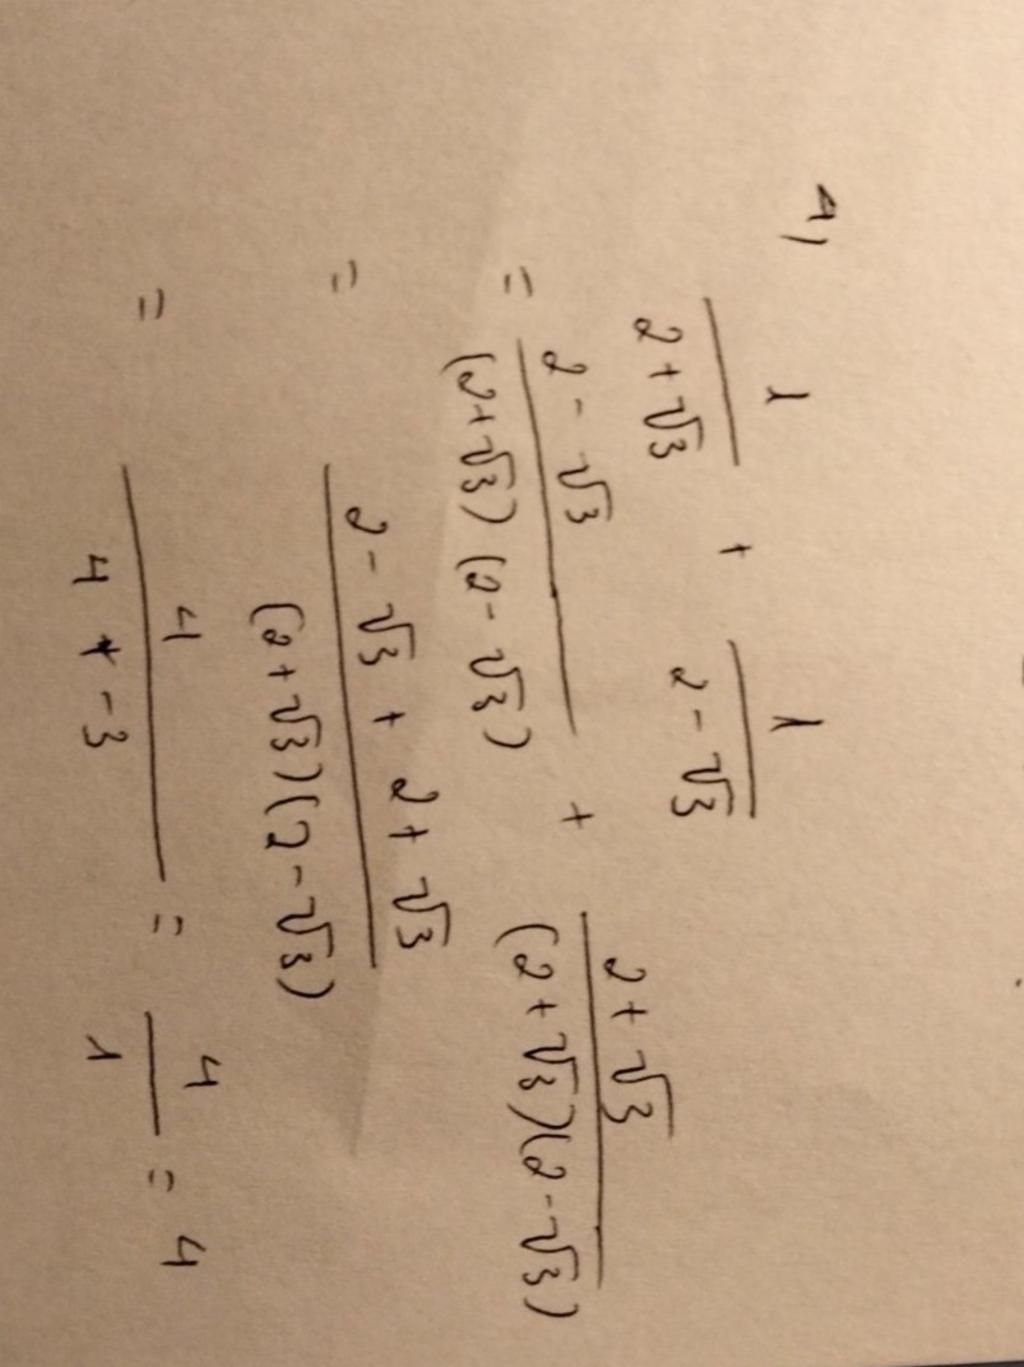 4) 1/(2+√3) + 1/(2-√3)
= (2-√3)/((2+√3)(2-√3)) + (2+√3)/((2+√3)(2-√3))
= (2-√3+2+√3)/((2+√3)(2-√3))
= 4/(4+-3) = 4/1 = 4